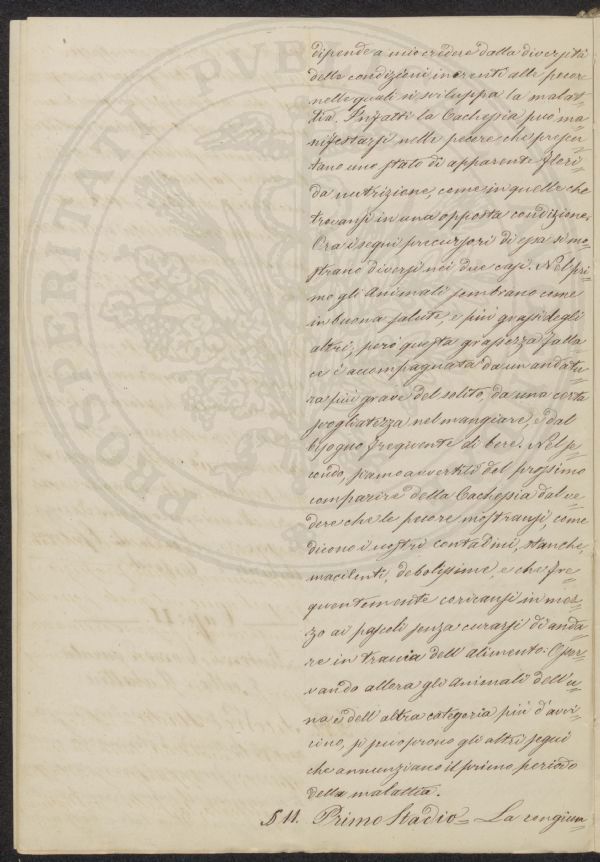 dipende a mio credere dalla diversità
delle condizioni inerenti alle pecore
nelle quali si sviluppa la malat=
tia. Infatti la Cachessia può ma=
nifestarsi nelle pecore che presen=
tano uno stato di apparente flori=
da nutrizione, come in quelle che
trovansi in una opposta condizione.
Ora i segni precursori di essa si mo=
strano diversi nei due casi. Nel pri=
mo gli animali sembrano come
in buona salute, e più grassi degli
altri, però questa grassezza falla=
ce è accompagnata da un andatu=
ra più grave del solito, da una certa
svogliatezza nel mangiare, e dal
bisogno frequente di bere. Nel se=
condo, siamo avvertiti del prossimo
comparire della Cachessia dal ve=
dere che le pecore mostransi come
dicono i nostri contadini, stanche,
macilenti, debolissime, e che fre=
quentemente coricansi in mez=
zo ai pascoli senza curarsi di anda=
re in traccia dell'alimento. Osser=
vando allora gli animali dell'u=
na e dell'altra categoria più d'avvi=
cino, si scoprono gli altri segni
che annunziano il primo periodo
della malattia.
§ 11. Primo Stadio = La congiun
PROSPERITATI PVBL
Cap. II